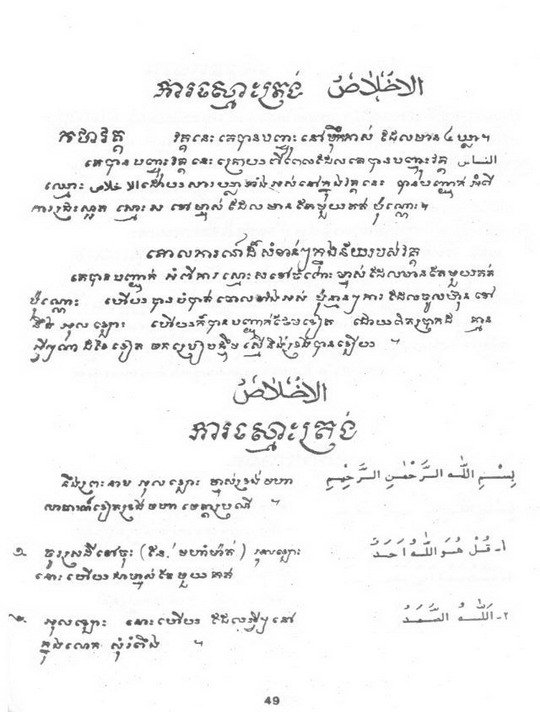 ការស្មោះត្រង់ الإخلاص
កថាវគ្គ វគ្គនេះ គេបានបញ្ចុះ នៅម៉ឹកកាស់ ដែលមាន ៤ ឃ្លា។
គេបានបញ្ចុះវគ្គនេះ ក្រោយពីពេលដែលគេបានបញ្ចុះវគ្គ الناس
ឈ្មោះ الاخلاص ដោយសារឃ្លាទាំងអស់នៅក្នុងវគ្គនេះ បានបញ្ជាក់ អំពី
ការជ្រះស្អាត ស្មោះស ទៅម្ចាស់ ដែលមានតែមួយគត់ ប៉ុណ្ណោះ។
គោលការណ៍ដ៏សំខាន់ៗក្នុងន័យរបស់វគ្គ
គេបានបញ្ជាក់ អំពីការស្មោះសទៅចំពោះម្ចាស់ ដែលមានតែមួយគត់
ប៉ុណ្ណោះ ហើយបានបំបាត់ចោលទាំងអស់ នូវការ ដែលចូលហ៊ុនទៅ
នឹង អុលឡោះ ហើយក៏បានបញ្ជាក់ថែមទៀត ដោយពិតប្រាកដ គ្មាន
អ្វីៗណា ដទៃទៀត មកប្រៀបផ្ទឹម ស្មើនឹងទ្រង់បានឡើយ ។
الإخلاص
ការស្មោះត្រង់
នឹងព្រះនាម អុលឡោះ ម្ចាស់ទ្រង់មហា بِسْمِ اللَّهِ الرَّحْمَٰنِ الرَّحِيمِ
ទៀតទ្រង់មហា មេត្តាប្រណី ។
១. ចូរស្រដីទៅចុះ (ឱ! មហាំម៉ាត់) អុលឡោះ ١- قُلْ هُوَ اللَّهُ أَحَدٌ
នោះហើយជាម្ចាស់តែមួយគត់
២. អុលឡោះ នោះហើយ ដែលអ្វីៗនៅ ٢- اللَّهُ الصَّمَدُ
ក្នុងលោក សុំរំពឹង ។
49